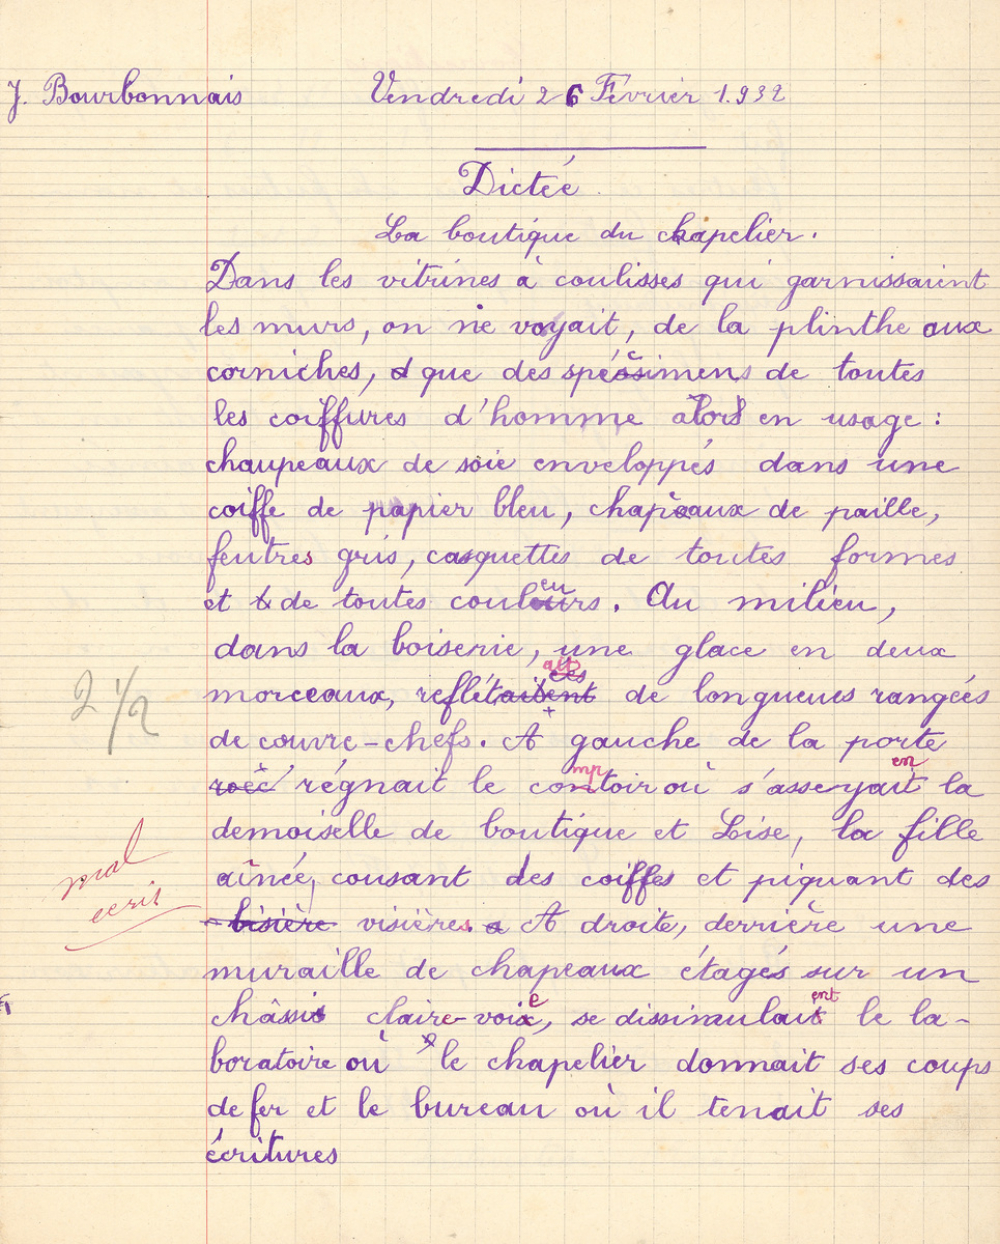 J. Bourbonnais Vendredi 26 Février 1.932
Dictée
La boutique du chapelier.
Dans les vitrines à coulisses qui garnissaient
les murs, on ne voyait, de la plinthe aux
corniches, que des spécimens de toutes
les coiffures d'homme alors en usage :
chaupeaux de soie enveloppés dans une
coiffe de papier bleu, chapeaux de paille,
feutres gris, casquettes de toutes formes
et de toutes couleurs. Au milieu,
dans la boiserie, une glace en deux
morceaux, reflétait de longueus rangées
de couvre-chefs. A gauche de la porte
2 1/2
régnait le comptoir où s'asseyaient la
demoiselle de boutique et Lise, la fille
aînée, cousant des coiffes et piquant des
mal
ecris
bisière visières. A droite, derrière une
muraille de chapeaux étagés sur un
châssis claire-voie, se dissimulaient le la-
boratoire où le chapelier donnait ses coups
de fer et le bureau où il tenait ses
écritures